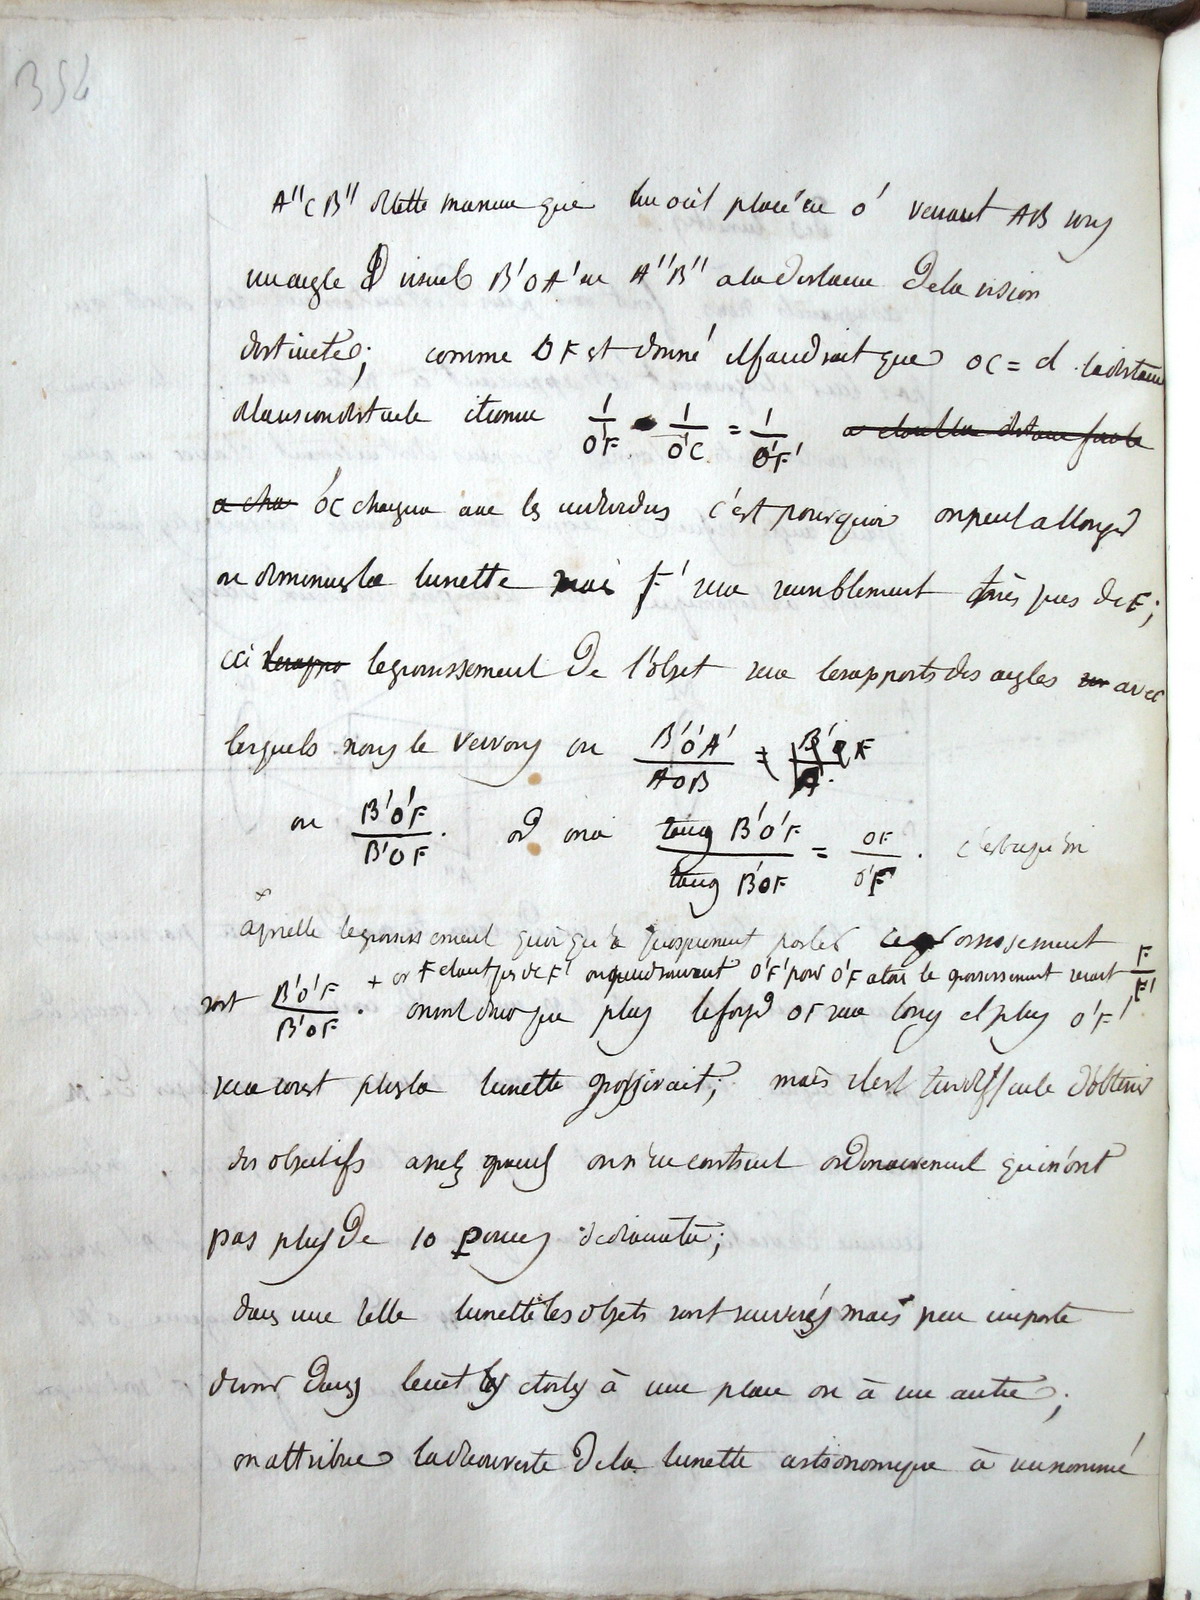 354
A"CB" de cette maniere que un œil placé en o' verrait AB sous
un angle visuel B'OA' en A"B" a la distance de la vision
distincte; comme OF est donné il faudrait que OC = d la distance
de la vision distincte et comme 1/O'F - 1/O'C = 1/O'F' a
a cha O'C change avec les individus c'est pourquoi on peut allonger
ou diminuer la lunette mais F' sera sensiblement très pres de F;
ici le rappo le grossissement de l'objet sera le rapports des angles avec
lesquels nous le verrons ou B'O'A'/AOB = B'O'F/A'
ou B'O'F/B'OF. or on a tang B'O'F/tang B'OF = OF/O'F. c'est ce qu'on
appelle le grossissement quoique proprement parler ce grossissement
+ or F etant pres de F' on prendrait O'F' pour O'F alors le grossissement serait F/F'
soit B'O'F/B'OF. on voit donc que plus le foyer OF sera long et plus O'F'
sera court plus la lunette grossirait; mais il est tres difficile d'obtenir
des objectifs assez grands on n'en construit ordinairement qui n'ont
pas plus de 10 pouces de diametre;
dans une telle lunette les objets sont renversés mais peu importe
d'voir dans le ciel les etoiles à une place ou à une autre;
on attribue la decouverte de la lunette astronomique à un nommé